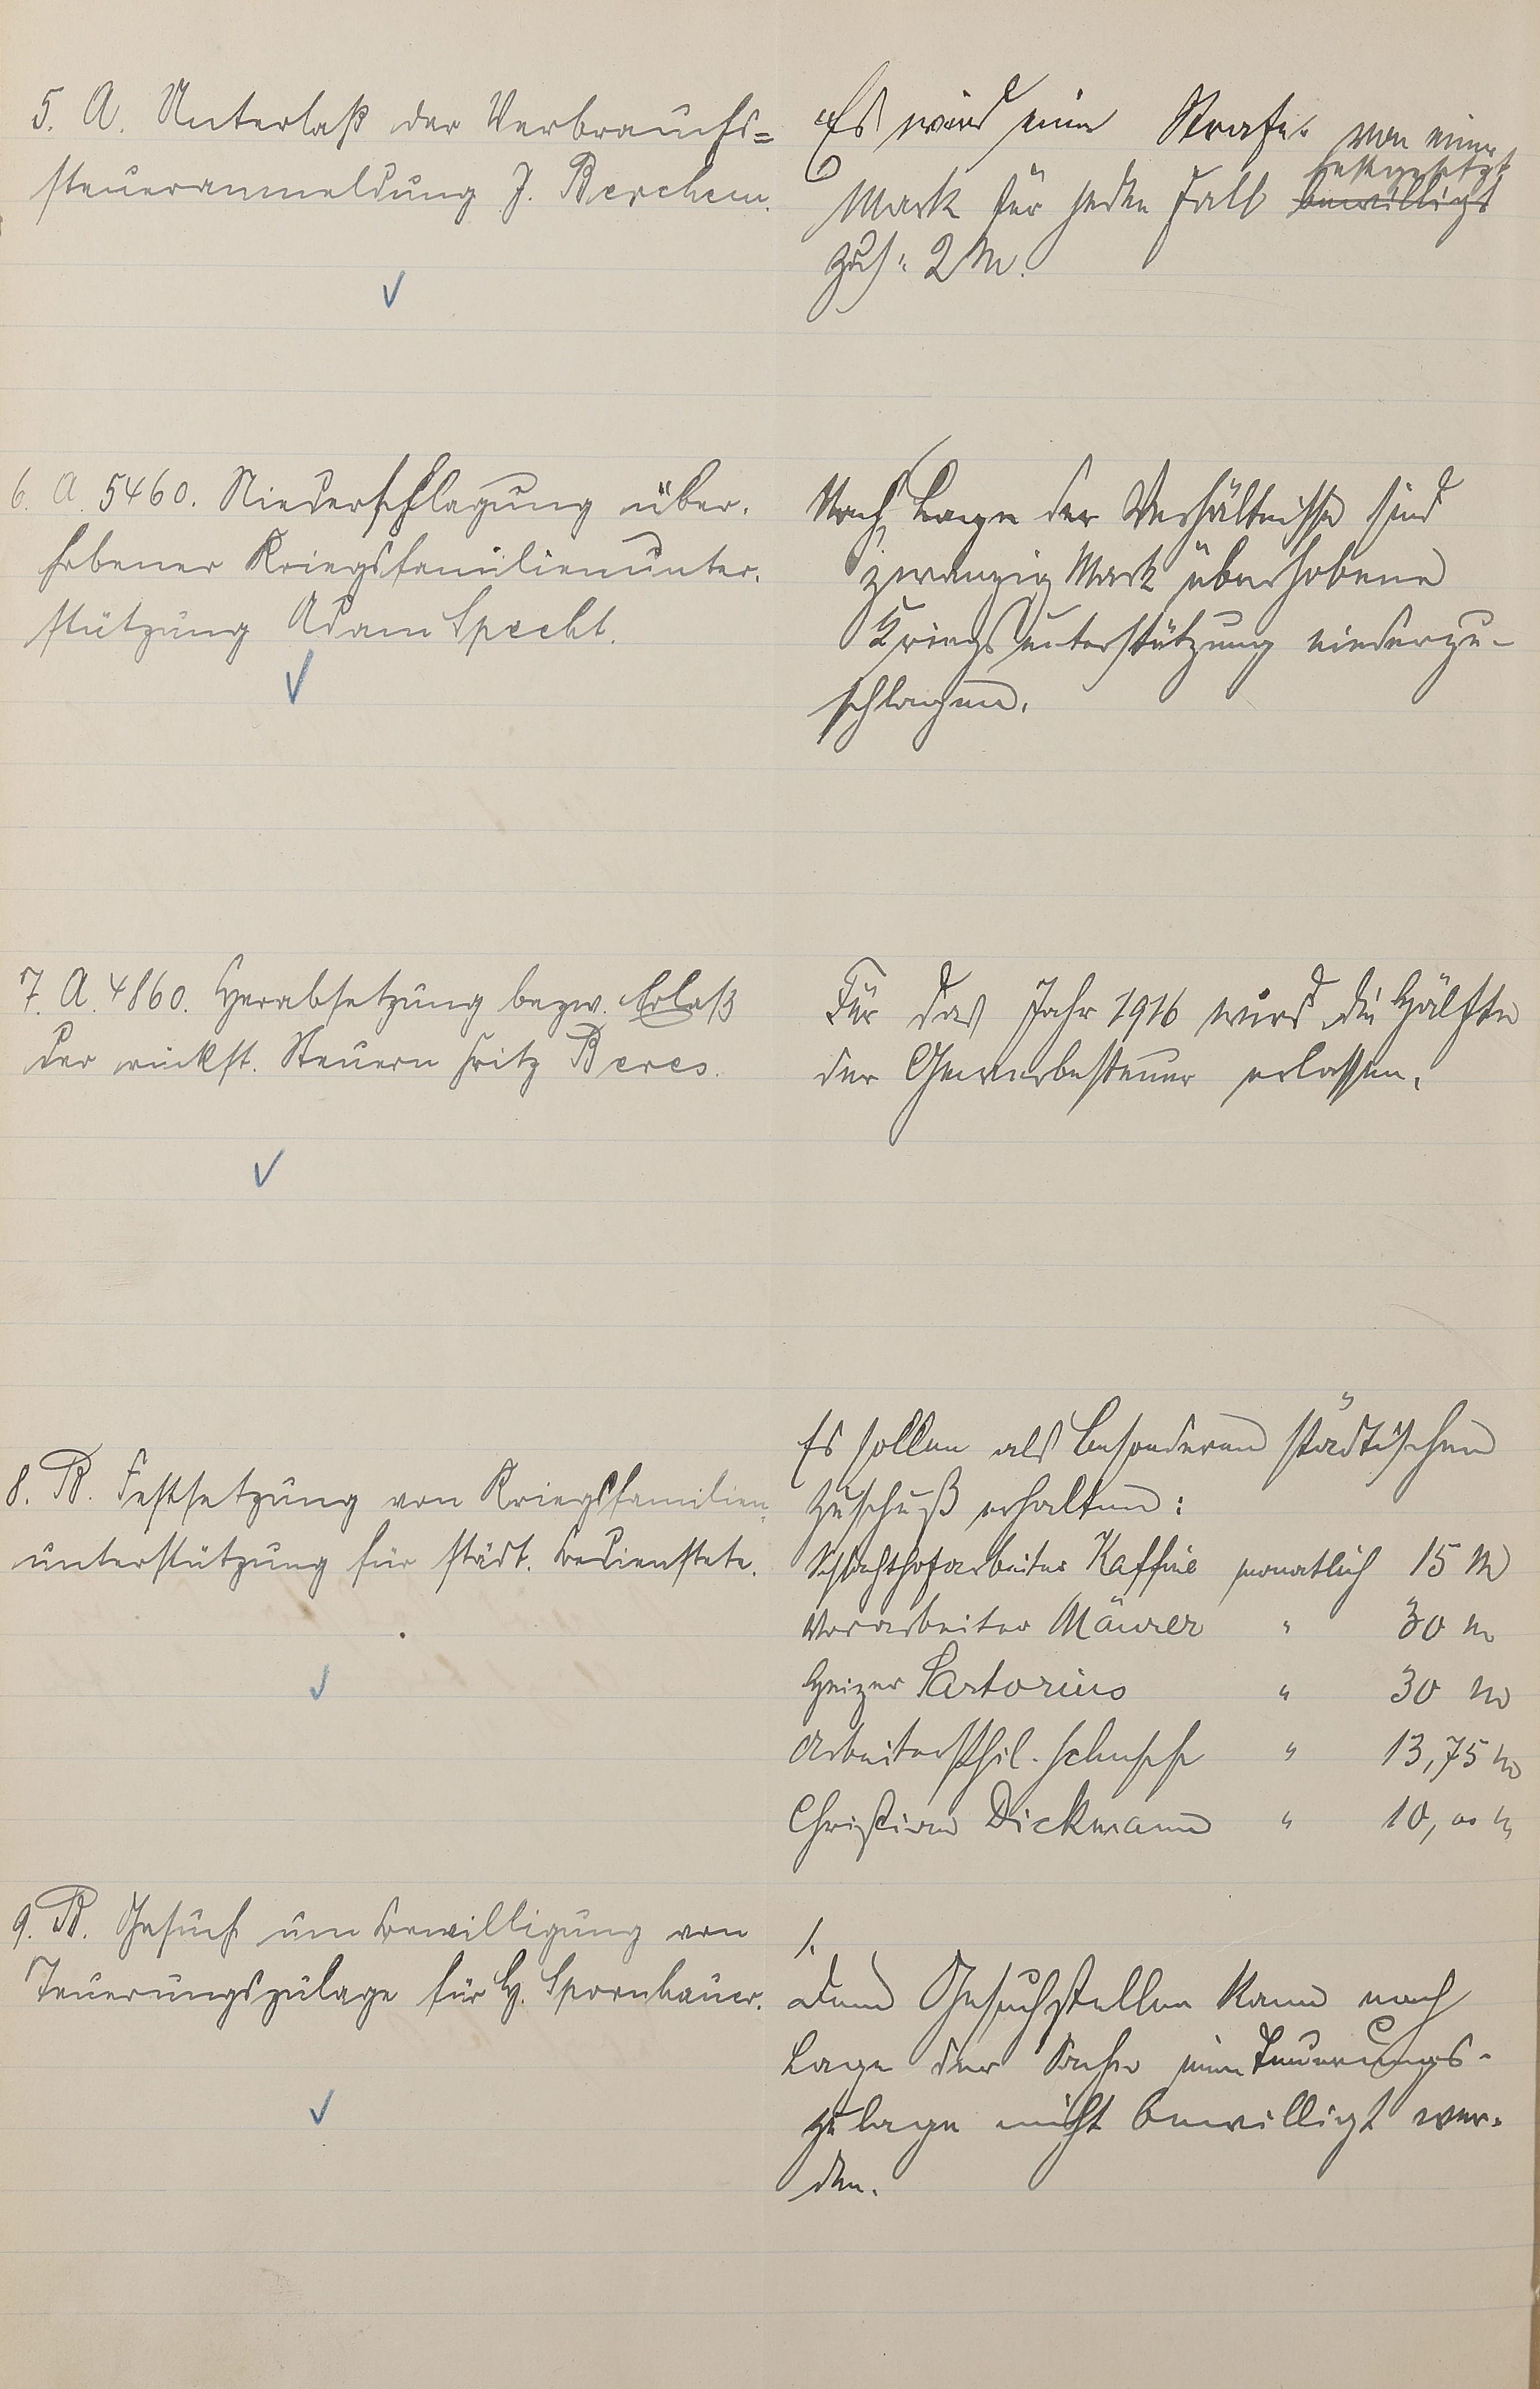 5. A. Unterlaß der Verbrauchs=
steueranmeldung J. Berchem.
Es wird eine Strafe von einer
festgesetzt
Mark für jeden Fall bewilligt
zus: 2 M.
6. A. 5460. Niederschlagung über-
hobener Kriegsfamilienunter-
stützung Adam Specht.
Nach Lage der Verhältnisse sind
zwanzig Mark überhobene
Kriegsunterstützung niederzu-
schlagen.
7. A. 4860. Herabsetzung bezw. Erlaß
der rückst. Steuern Fritz Beres.
Für das Jahr 1916 wird die Hälfte
der Gewerbesteuer erlassen.
8. B. Festsetzung von Kriegsfamilien-
unterstützung für städt. Bedienstete.
Es sollen als besonderen städtischen
Zuschuß erhalten:
Schlachthofarbeiter monatlich 15 M
Vorarbeiter Mäurer " 30 M
Heizer Sartorius " 30 M
Arbeiter Phil. " 13,75 M
Christian Dickmann " 10,00 M
9. B. Gesuch um Bewilligung von
Teuerungszulage für H. Spornhauer.
1.
Dem Gesuchsteller kann nach
Lage der Sache eine Teuerungs-
zulage nicht bewilligt wer-
den.